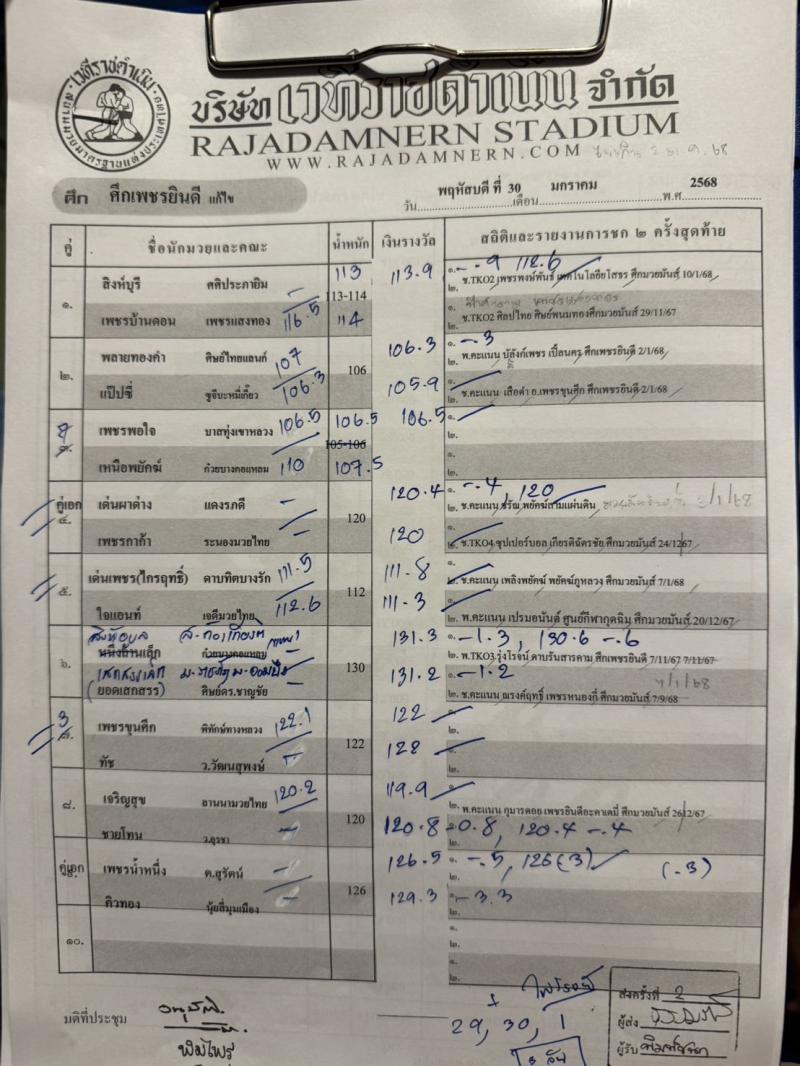 เวทีราชดำเนิน
บริษัท เวทีราชดำเนิน จำกัด
RAJADAMNERN STADIUM
WWW.RAJADAMNERN.COM
ศึก ศึกเพชรยินดี แก้ไข วัน พฤหัสบดี ที่ 30 เดือน มกราคม พ.ศ 2568
คู่ ชื่อนักมวยและคณะ น้ำหนัก เงินรางวัล สถิติและรายงานการชก ๒ ครั้งสุดท้าย
๑. สิงห์บุรี ศศิประภายิม 113 113.9 ๑. -.9 112.6
113-114 ช.TKO2 เพชรพงษ์พันธ์ เทคโนโลยียโสธร ศึกมวยมันส์ 10/1/68
๒.
เพชรบ้านดอน เพชรแสงทอง 116.5 114 ๑.
ช.TKO2 ศิลปไทย ศิษย์พนมทอง ศึกมวยมันส์ 29/11/67
๒.
๒. พลายทองคำ ศิษย์ไทยแลนก์ 107 106 106.3 ๑. -.3
๒. พ.คะแนน บัลังก์เพชร เปี้ลนคร ศึกเพชรยินดี 2/1/68
แป๊ปซี่ ซูจีบะหมี่เกี๊ยว 106.3 105.9 ๑.
๒. ช.คะแนน เสือดำ อ.เพชรขุนศึก ศึกเพชรยินดี 2/1/68
๓. เพชรพอใจ บาสทุ่งเขาหลวง 106.5 106.5 106.5 ๑.
105-106 ๒.
เหนือพยัคฆ์ ก๋วยบางคอแหลม 110 107.5 ๑.
๒.
คู่เอก ๔. เด่นผาด่าง แดงรภดี - 120 120.4 ๑. -.4, 120
๒. ช.คะแนน ชรัณ พยัคฆ์สามแผ่นดิน
เพชรกาก้า ระนองมวยไทย - 120 ๑.
๒. ช.TKO4 ซุปเปอร์บอล เกียรติฉัตรชัย ศึกมวยมันส์ 24/12/67
๕. เด่นเพชร(ไกรฤทธิ์) ดาบทิตบางรัก 111.5 112 111.8 ๑.
๒. ช.คะแนน เพลิงพยัคฆ์ พยัคฆ์ภูหลวง ศึกมวยมันส์ 7/1/68
ใจแอนท์ เจดีมวยไทย 112.6 111.3 ๑.
๒. พ.คะแนน เปรมอนันต์ ศูนย์กีฬากุดฉิม ศึกมวยมันส์ 20/12/67
๖. หนึ่งถ้ำนเล็ก ก๋วยบางคอแหลม 130 131.3 ๑. -1.3, 130.6 -.6
๒. พ.TKO3 รุ่งโรจน์ ดาบรันสารคาม ศึกเพชรยินดี 7/11/67 7/11/67
(ยอดเสกสรร) ศิษย์ดร.ชาญชัย 131.2 ๑. -1.2
๒. ช.คะแนน ณรงค์ฤทธิ์ เพชรหนองกี่ ศึกมวยมันส์ 7/9/68
3 ๗. เพชรขุนศึก พิทักษ์ทางหลวง 122.1 122 122 ๑.
๒.
ทัช ว.วัฒนสุพงษ์ 128 ๑.
๒.
๘. เจริญสุข อานนามวยไทย 120.2 120 119.9 ๑.
๒. พ.คะแนน กุมารดอย เพชรยินดีอะคาเดมี่ ศึกมวยมันส์ 26/12/67
ชายโทน ว.อุรชา - 120.8 -0.8, 120.4 -.4
คู่เอก เพชรน้ำหนึ่ง ต.สุรัตน์ - 126 126.5 ๑. -.5, 126(3) (-.3)
๒.
กิวทอง นุ้ยสี่มุมเมือง - 129.3 ๑. -3.3
๒.
๑๐. ๑.
๒.
๑.
๒.
มติที่ประชุม
29, 30, 1
ส่งครั้งที่ 2
ผู้ส่ง
ผู้รับ